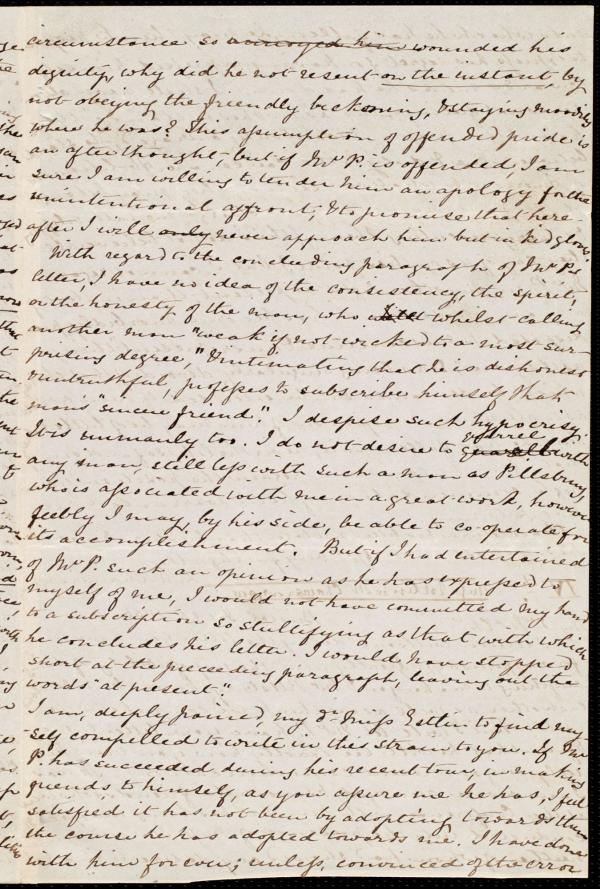 circumstance so annoyed him wounded his
dignity, why did he not resent on the instant, by
not obeying the friendly beckoning, & staying moodily
where he was? This assumption of offended pride is
an after thought, but if Mr P. is offended, I am
sure I am willing to tender him an apology for the
unintentional affront, & to promise that here-
after I will only never approach him but in kid gloves.
With regard to the concluding paragraph of Mr P's
letter, I have no idea of the consistency, the spirit,
or the honesty of the man, who whilst calling
another man "weak if not wicked to a most sur-
prising degree," & intimating that he is dishonest
& untruthful, professes to subscribe himself that
man's "sincere friend." I despise such hypocrisy.
It is unmanly too. I do not desire to quarrel with
any man, still less with such a man as Pillsbury,
who is associated with me in a great work, however
feebly I may, by his side, be able to co-operate for
its accomplishment. But if I had entertained
of Mr P. such an opinion as he has expressed to
myself of me, I would not have committed my hand
to a subscription so stultifying as that with which
he concludes his letter. I would have stopped
short at the preceeding paragraph, leaving out the
words "at present".
I am, deeply pained, my dr Miss Estlin to find my-
self compelled to write in this strain to you. If Mr
P. has succeeded during his recent tour, in making
friends to himself, as you assure me he has, I feel
satisfied it has not been by adopting towards them
the course he has adopted towards me. I have done
with him for ever; unless, convinced of the error